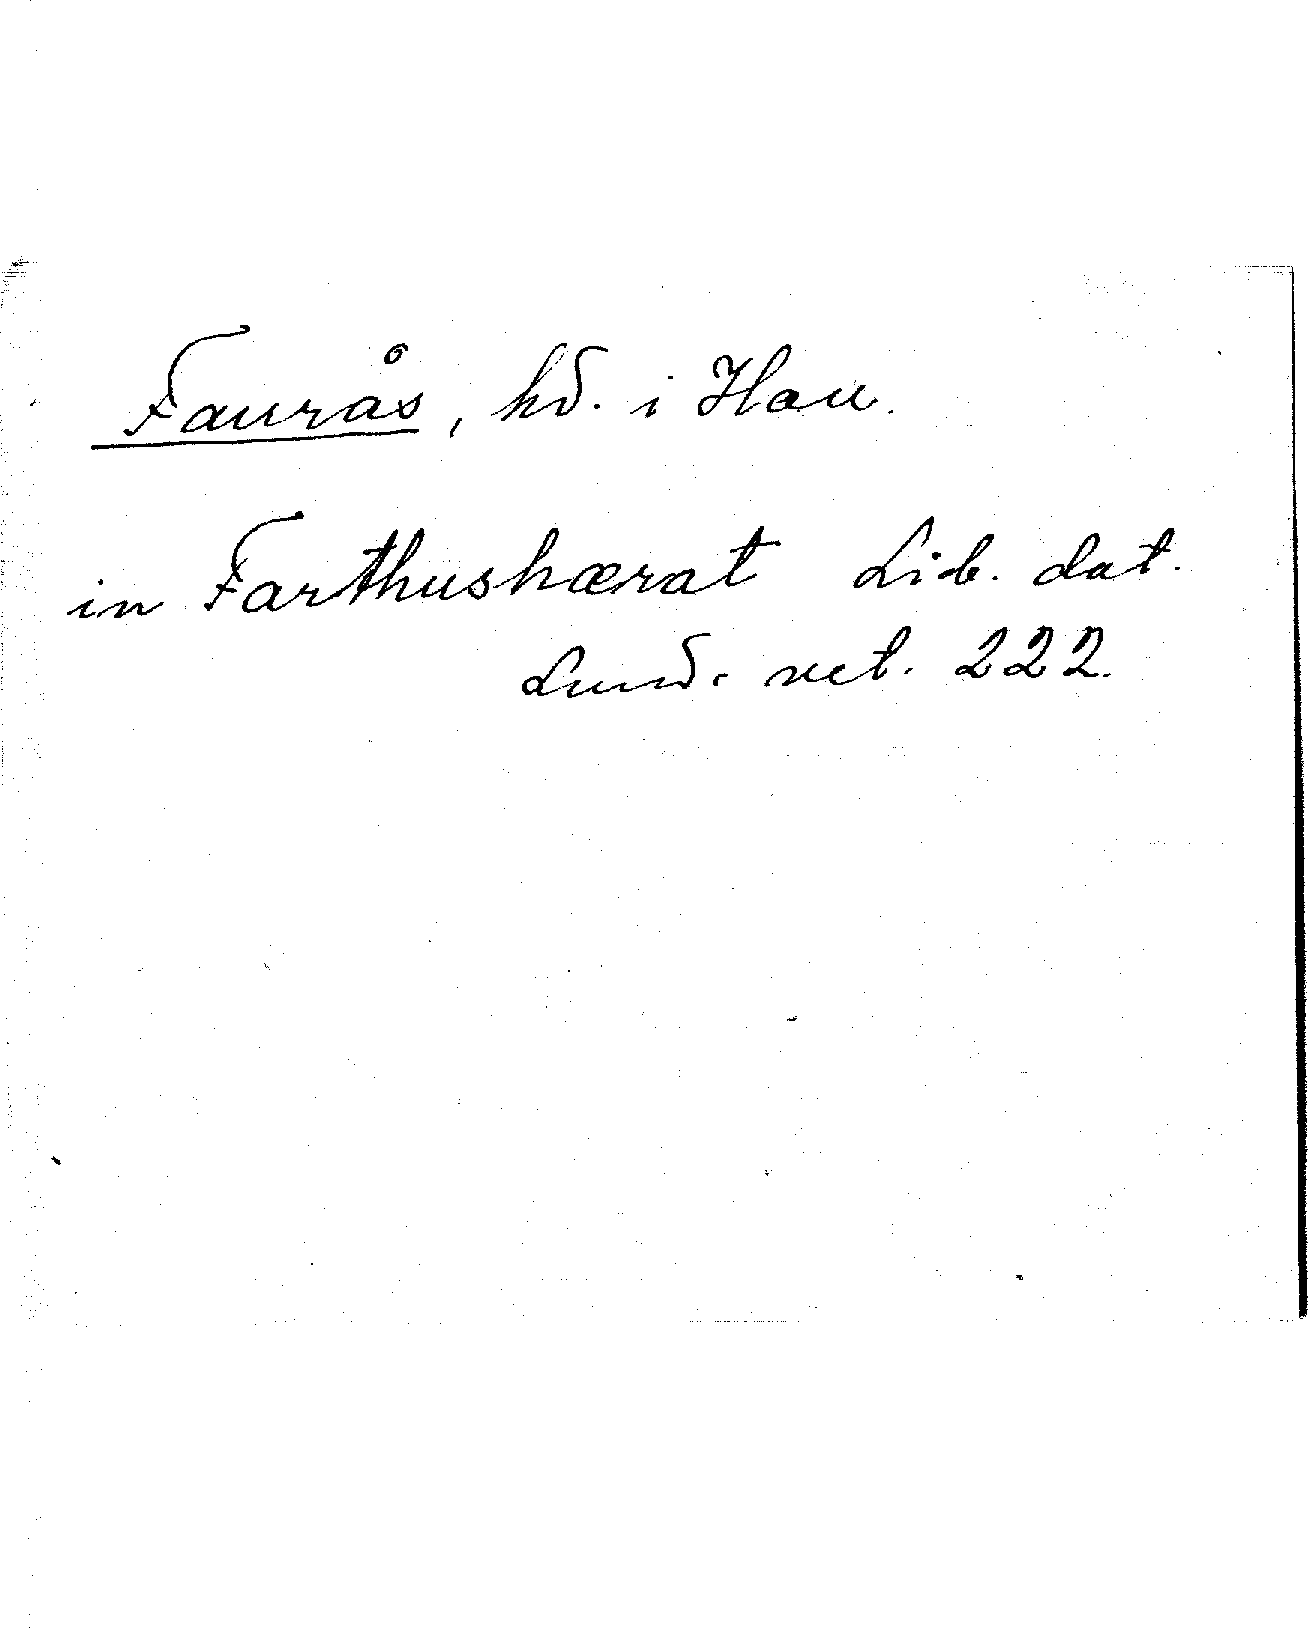 Faurås, hd. i Hall.
in Farthushærat Lib. dat.
Lund. vet. 222.